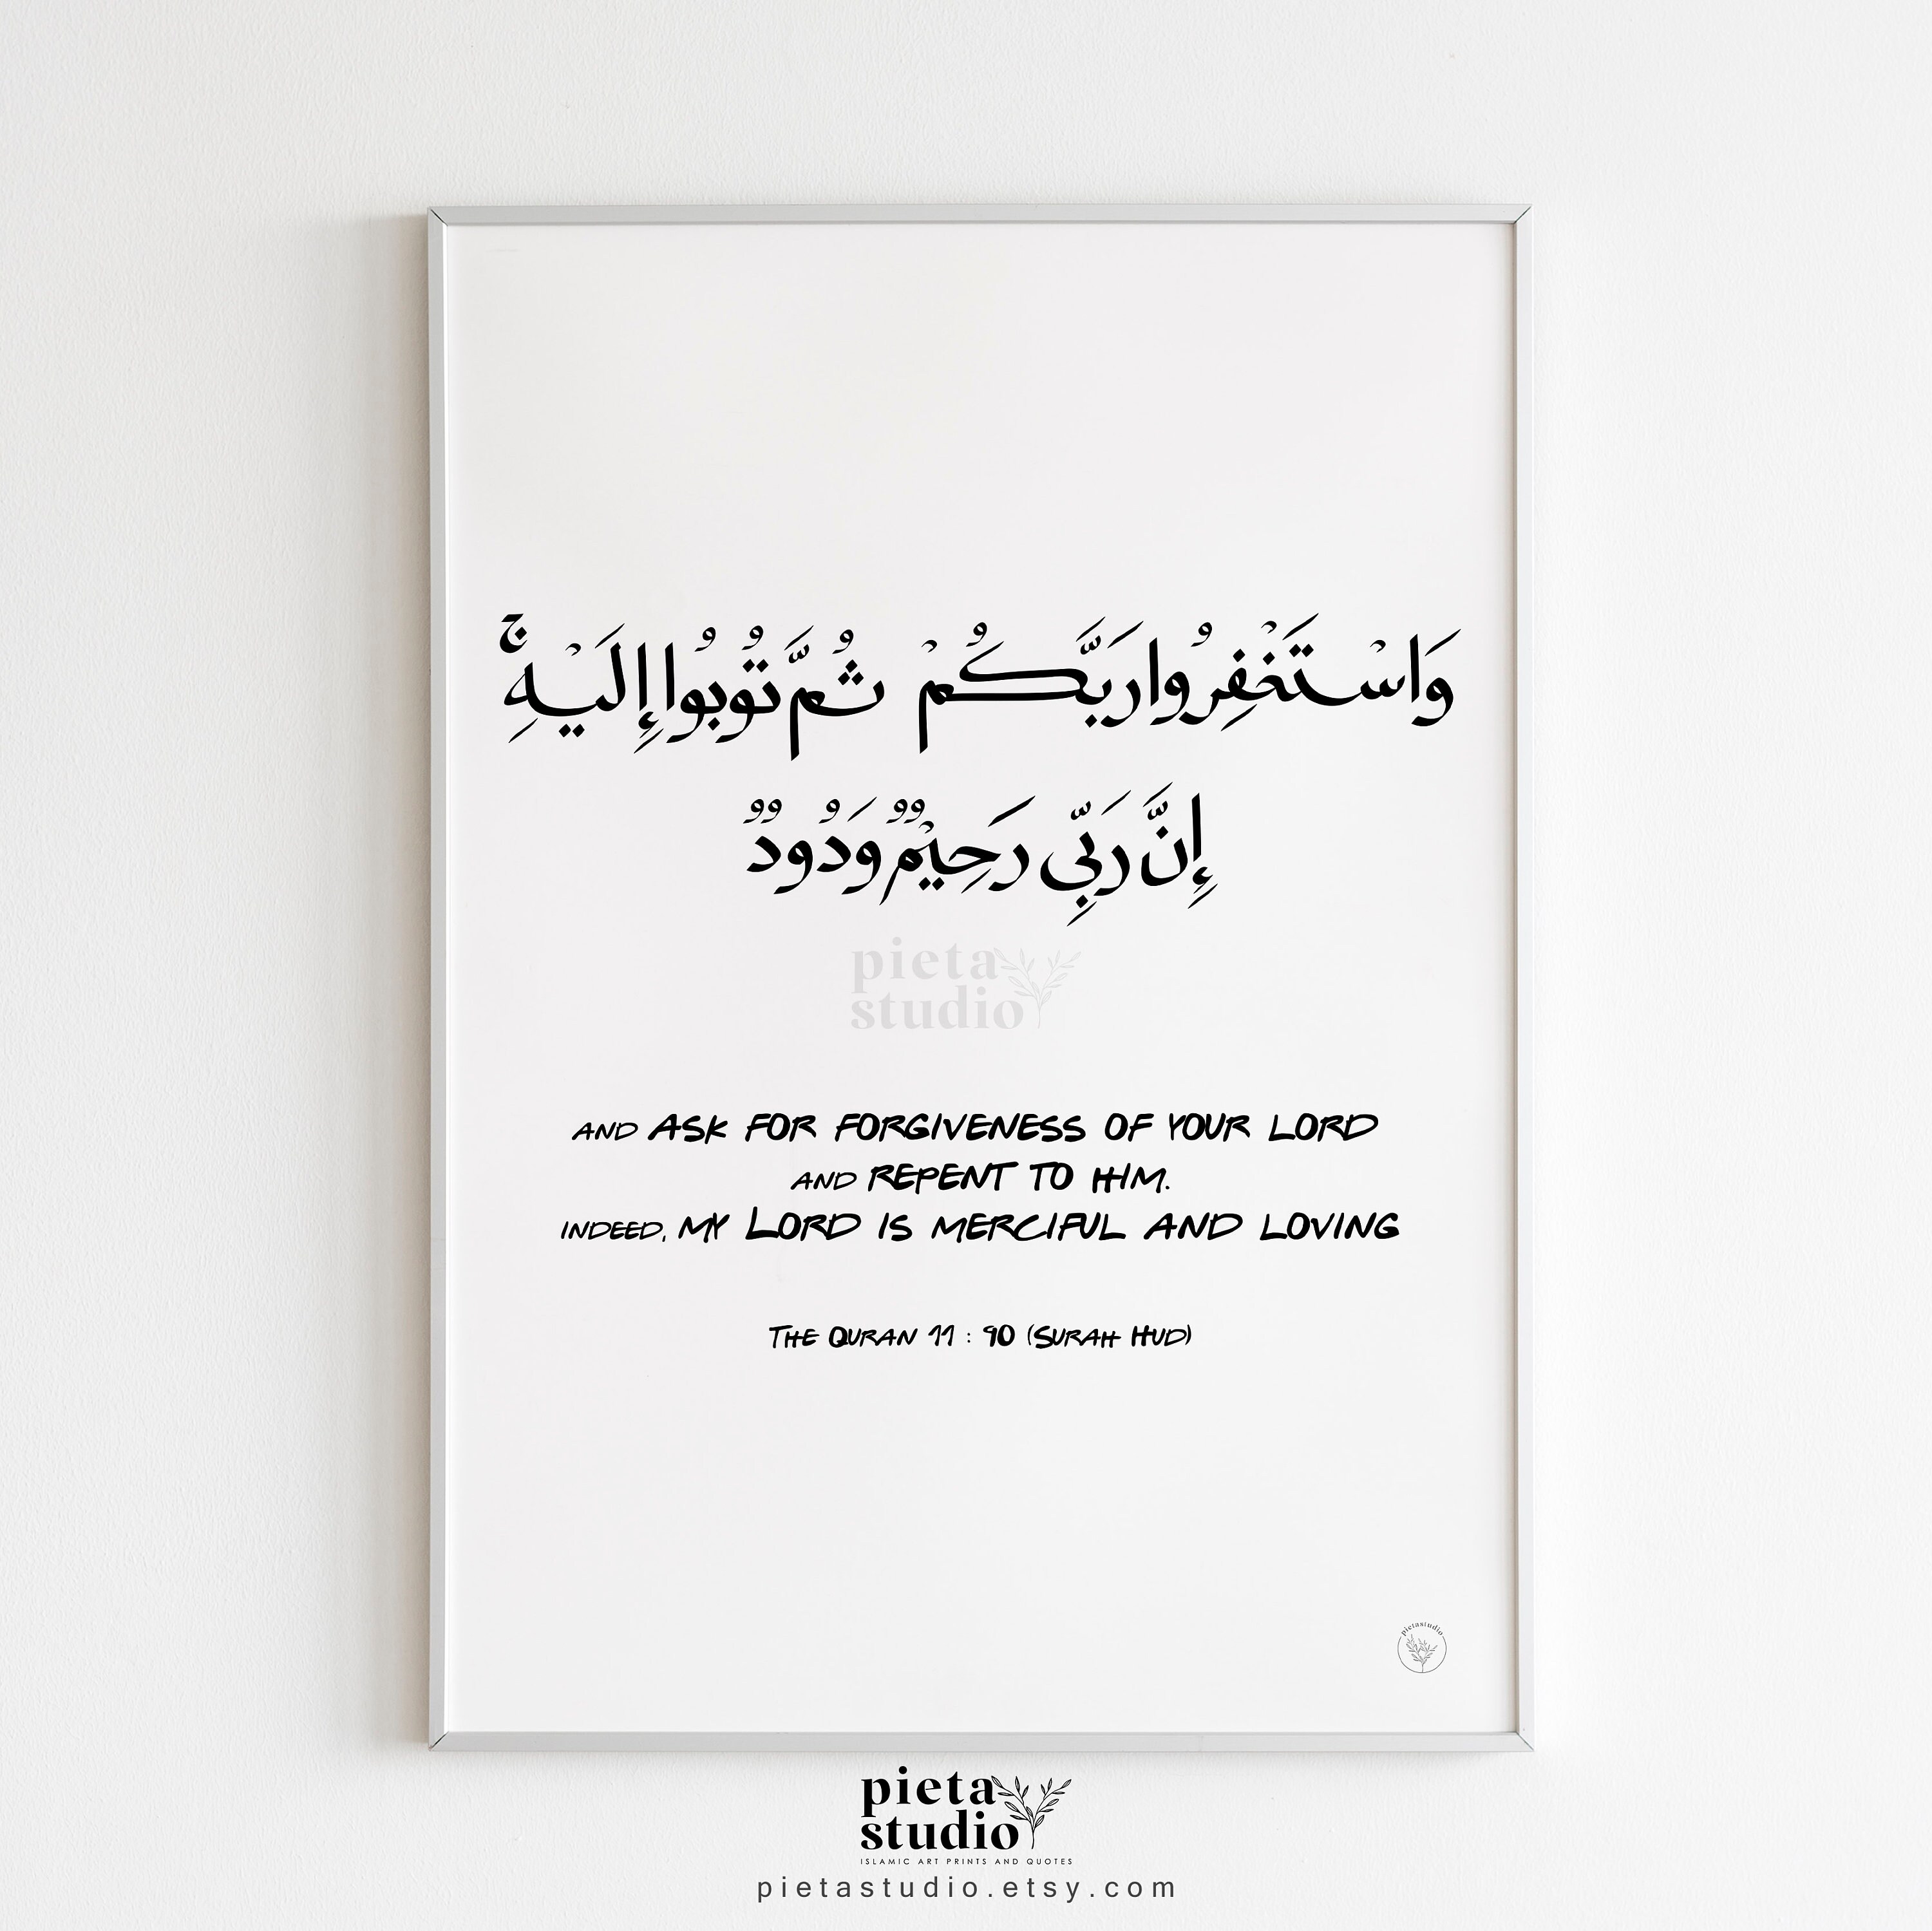 وَاسْتَغْفِرُوا رَبَّكُمْ ثُمَّ تُوْبُوا إِلَيْهِ ۚ
إِنَّ رَبِّي رَحِيْمٌ وَدُودٌ
pieta
studio
AND ASK FOR FORGIVENESS OF YOUR LORD
AND REPENT TO HIM.
INDEED, MY LORD IS MERCIFUL AND LOVING
THE QURAN 11 : 90 (SURAH HUD)
pietastudio
pieta
studio
ISLAMIC ART PRINTS AND QUOTES
pietastudio.etsy.com